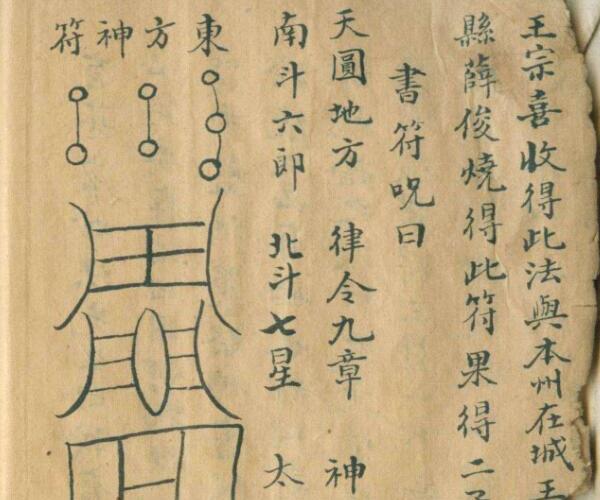 王宗喜收得此法與本州在城王
縣薛俊燒得此符果得二子
書符呪曰
天圓地方 律令九章 神
南斗六郎 北斗七星 太
東方神符